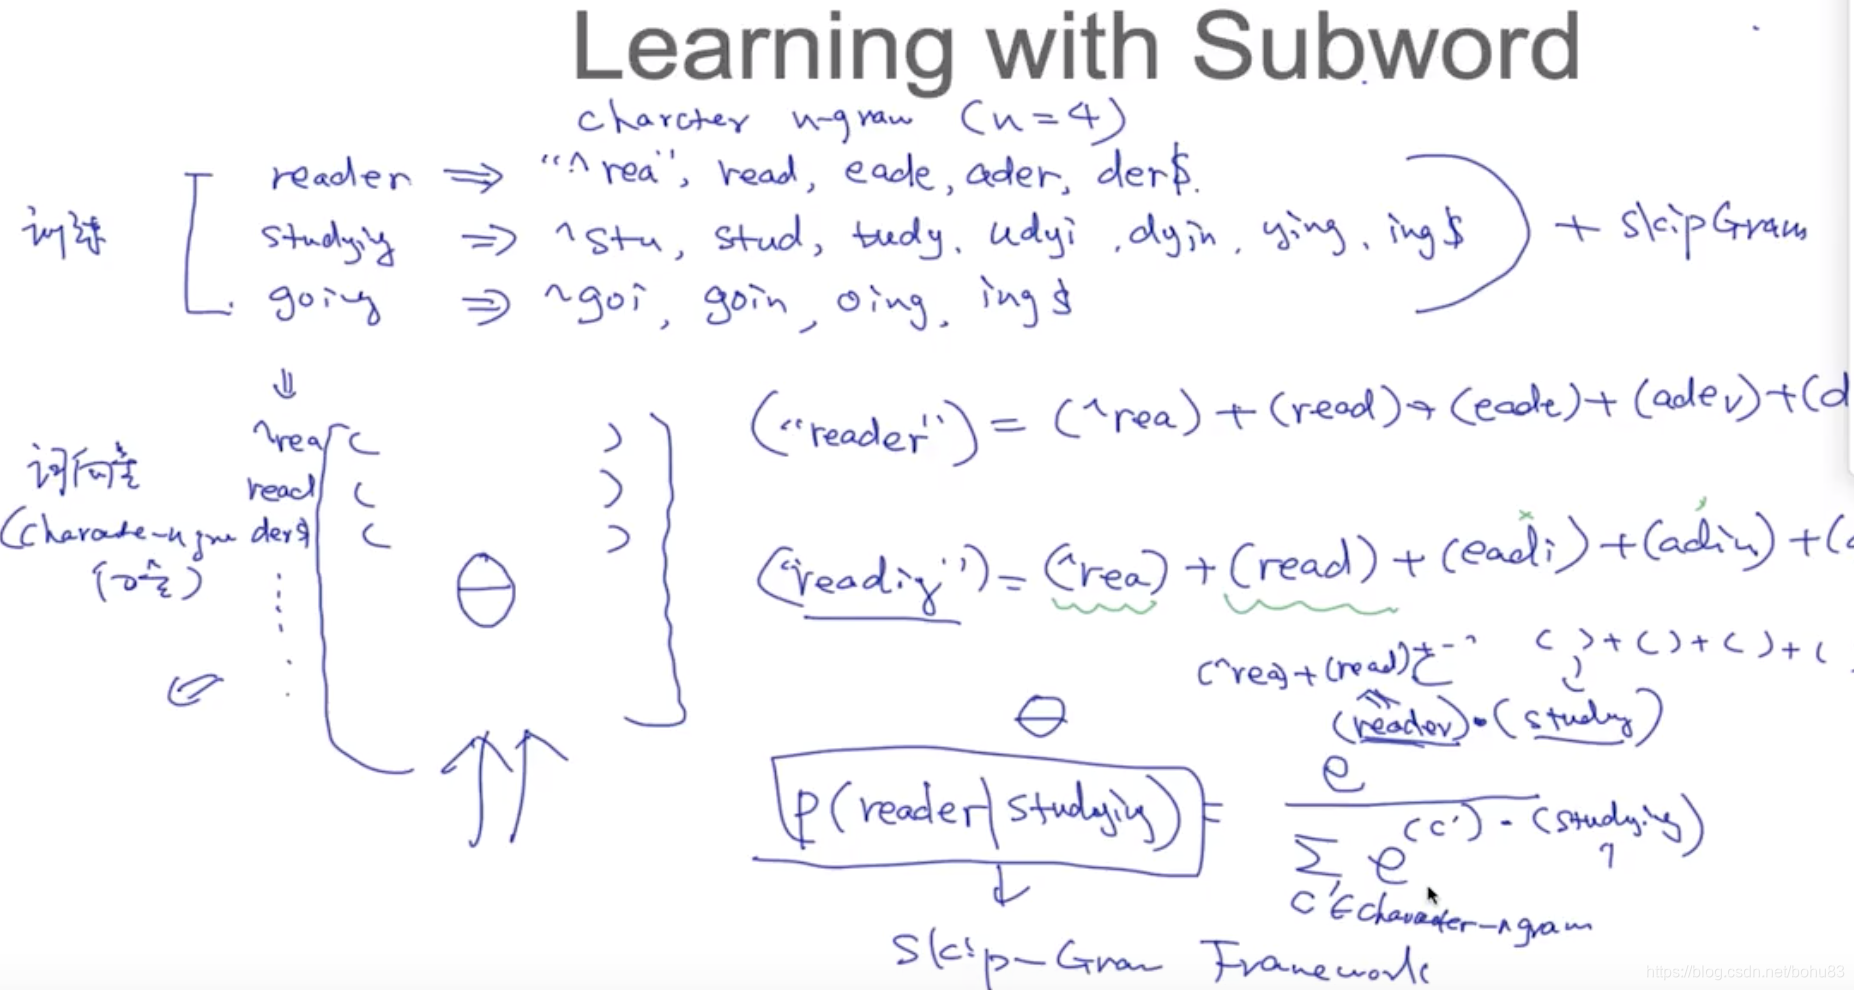 Learning with Subword
charcter n-gram (n=4)
reader ⇒ "^rea", read, eade, ader, der$.
训练 studying ⇒ ^stu, stud, tudy, udyi, dyin, ying, ing$ + skipGram
going ⇒ ^goi, goin, oing, ing$
("reader") = (^rea) + (read) + (eade) + (ader) + (d
^rea ( )
词向量 read ( )
(Characte-n gram der$ ( )
("readig") = (^rea) + (read) + (eadi) + (adin) + (
θ
(^rea) + (read) + ( ) + ( ) + ( ) + (
θ (reader) · (studying)
p(reader|studying) = e
Σ e (c') · (studying)
c' ∈ character-n gram
Skip-Gram Framework
https://blog.csdn.net/bohu83